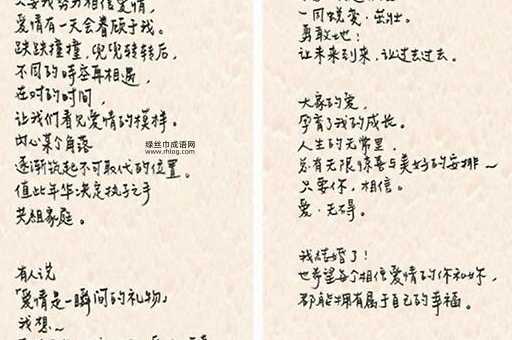 只要我努力相信愛情,
愛情有一天会眷顾于我。
跌跌撞撞,兜兜转转后,
不同的時空再相遇,
在对的时间,
让我们看见爱情的模样。
内心某个角落
逐渐筑起不可取代的位置。
值此年华决定执子之手
共组家庭。
有人说
「爱情是一瞬间的礼物」
我想~
一同蜕变·茁壮。
勇敢地!
让未来到来,让过去过去。
大家的爱,
孕育了我的成长。
人生的无常里,
总有无限惊喜与美好的安排~
只要你,相信。
爱·无碍。
我结婚了!
也希望每个相信爱情的你和妳,
都能拥有属于自己的幸福。
绿丝巾成语网
www.rhlog.com